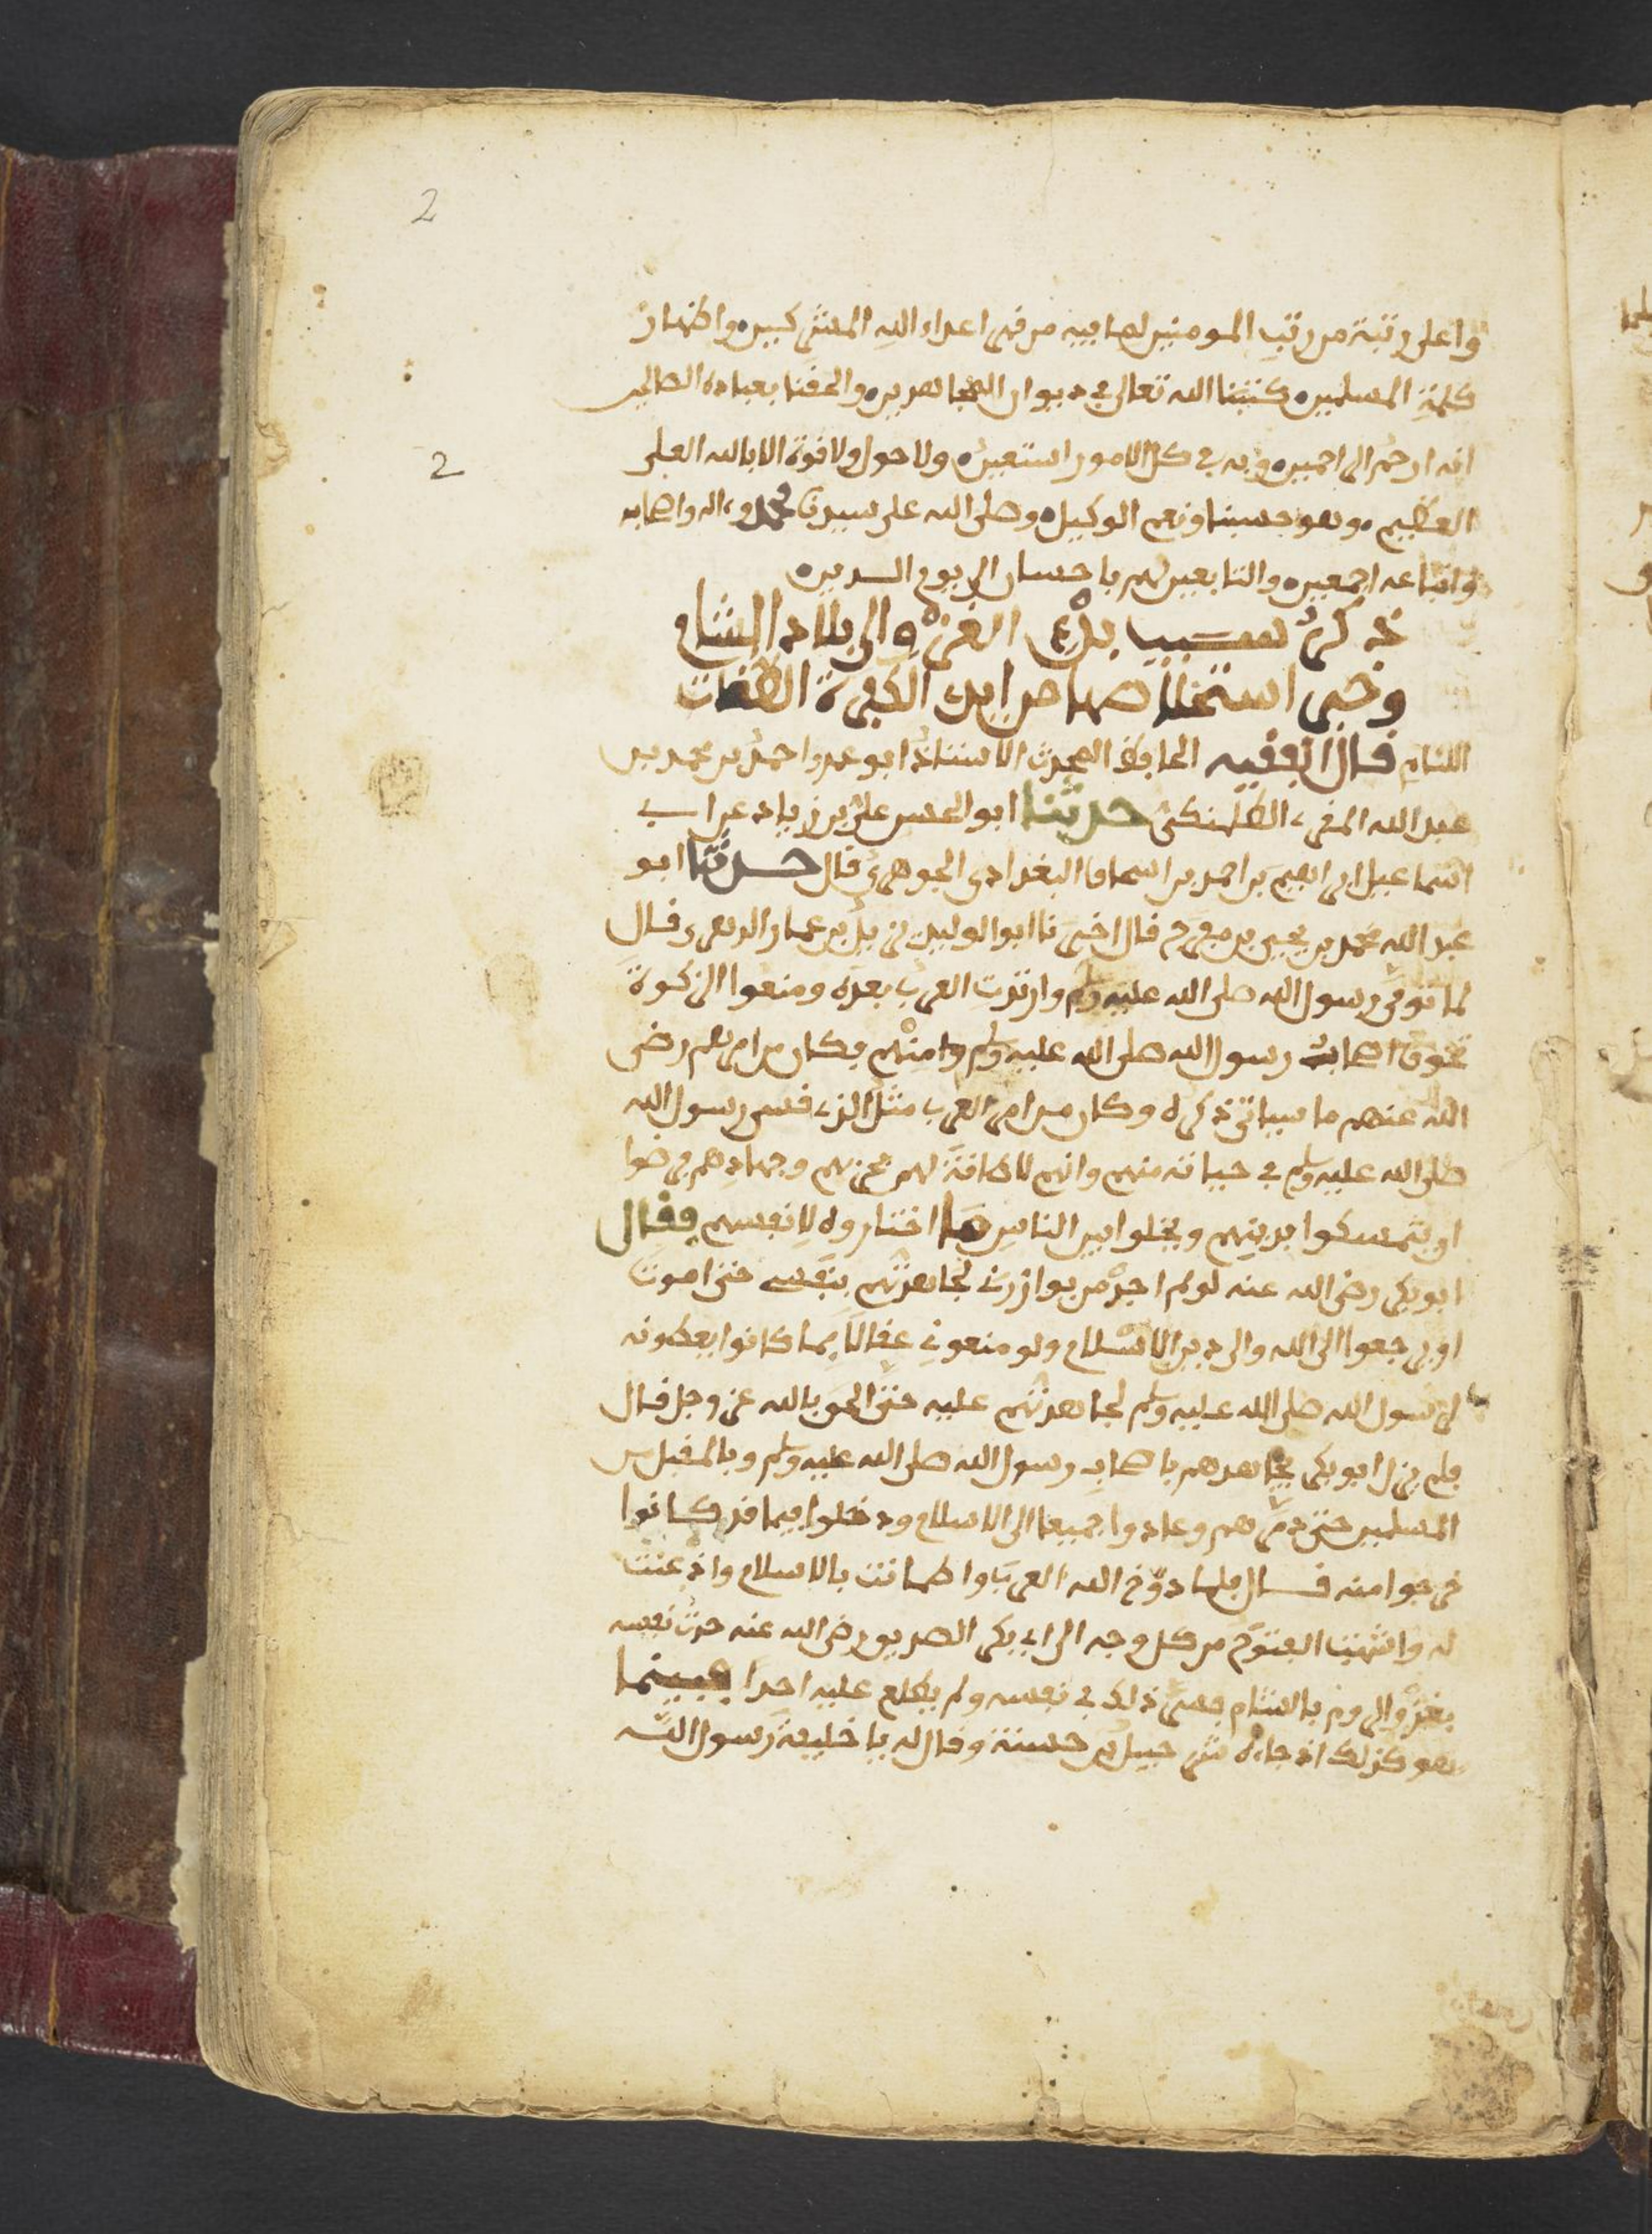 2
واعلى رتبة من رتب المومنين لما فيه من قهر اعداء الله المشركين واظهار
كلمة المسلمين كتبنا الله تعالى في ديوان المجاهدين والحقنا بعباده الصالحين
انه ارحم الراحمين وبه في كل الامور استعين ولا حول ولا قوة الا بالله العلي
2
العظيم وهو حسبنا ونعم الوكيل وصلى الله على سيدنا محمد وءاله واصحابه
واتباعه اجمعين والتابعين لهم باحسان الى يوم الدين
ذكر سبب بدء الغزو الى بلاد الشام
وخبر استخلاصها من ايدي الكفرة الطغات
اللئام قال الفقيه الحافظ المحدث الاستاذ ابو عمر احمد بن محمد بن
عبد الله المقرىء الطلمنكي حدثنا ابو الحسن علي بن زياد عن ابي
اسماعيل ابراهيم بن احمد بن اسحاق البغدادي الجوهري قال حدثنا ابو
عبد الله محمد بن يحيى بن مفرج قال اخبرنا ابو الوليد بن عمار الدهري قال
لما توفي رسول الله صلى الله عليه وسلم وارتدت العرب بعده ومنعوا الزكوة
تخوف اصحاب رسول الله صلى الله عليه وسلم وامتهم فكان من امرهم رضي
الله عنهم ما سياتي ذكره وكان من امر العرب مثل الذي قسى رسول الله
صلى الله عليه وسلم في حياته منهم وانهم لا طاقة لهم بحربهم وجهادهم فرضوا
ان يتمسكوا بدينهم ويخلوا بين الناس وما اختاروه لانفسهم فقال
ابو بكر رضي الله عنه لو لم اجد من يوازرني لجاهدتهم بنفسي حتى اموت
او يرجعوا الى الله والى دين الاسلام ولو منعوني عقالا مما كانوا يعطونه
لرسول الله صلى الله عليه وسلم لجاهدتهم عليه حتى الحق بالله عز وجل قال
فلم يزل ابو بكر يجاهدهم باصحاب رسول الله صلى الله عليه وسلم وبالمقبل من
المسلمين حتى دمرهم وعادوا جميعا الى الاسلام ودخلوا فيما قد كانوا
خرجوا منه قال فلما دوخ الله العرب واطمانت بالاسلام واذعنت
له وانتهت الفتوح من كل وجه الى ابي بكر الصديق رضي الله عنه حدث نفسه
بغزو الروم بالشام فاسر ذلك في نفسه ولم يطلع عليه احدا فبينما
هو كذلك اذ جاءه شرحبيل بن حسنة وقال له يا خليفة رسول الله